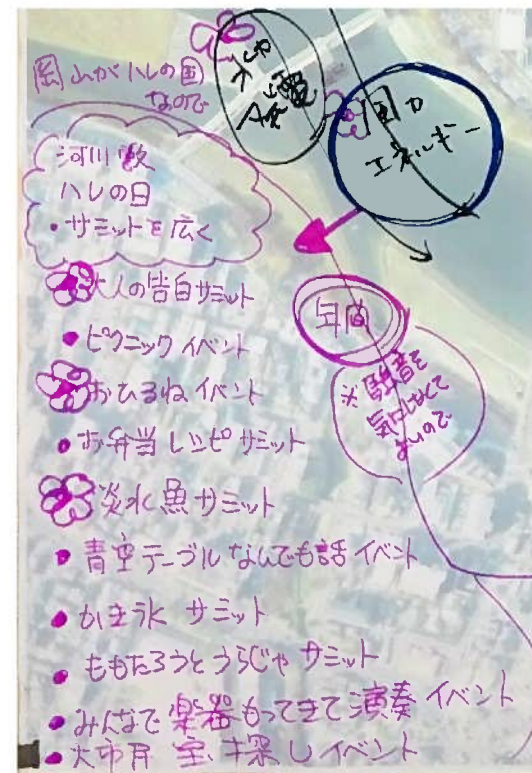 岡山がハレの国
なので
河川敷
ハレの日
・サミットを広く
大人の告白サミット
・ピクニックイベント
おひるねイベント
・お弁当レシピサミット
淡水魚サミット
・青空テーブルなんでも話イベント
・かき氷 サミット
・ももたろうとうらじゃ サミット
・みんなで楽器もってきて演奏イベント
・大市民宝探しイベント
発電
エネルギー
年間
※騒音を
気にしなくて
よいので